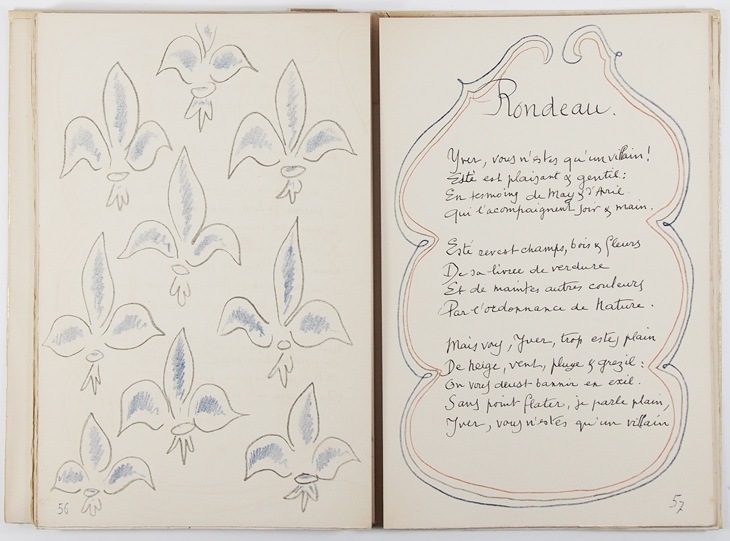 56
Rondeau.
Yver, vous n'estes qu'un villain!
Esté est plaisant & gentil:
En tesmoing de May & d'Avril
Qui l'acompaignent soir & main.
Esté revest champs, bois & fleurs
De sa livree de verdure
Et de maintes autres couleurs
Par l'ordonnance de Nature.
Mais voy, Yver, trop estes plain
De neige, vent, pluye & grezil:
On vous deust bannir en exil.
Sans point flater, je parle plain,
Yver, vous n'estes qu'un villain
57